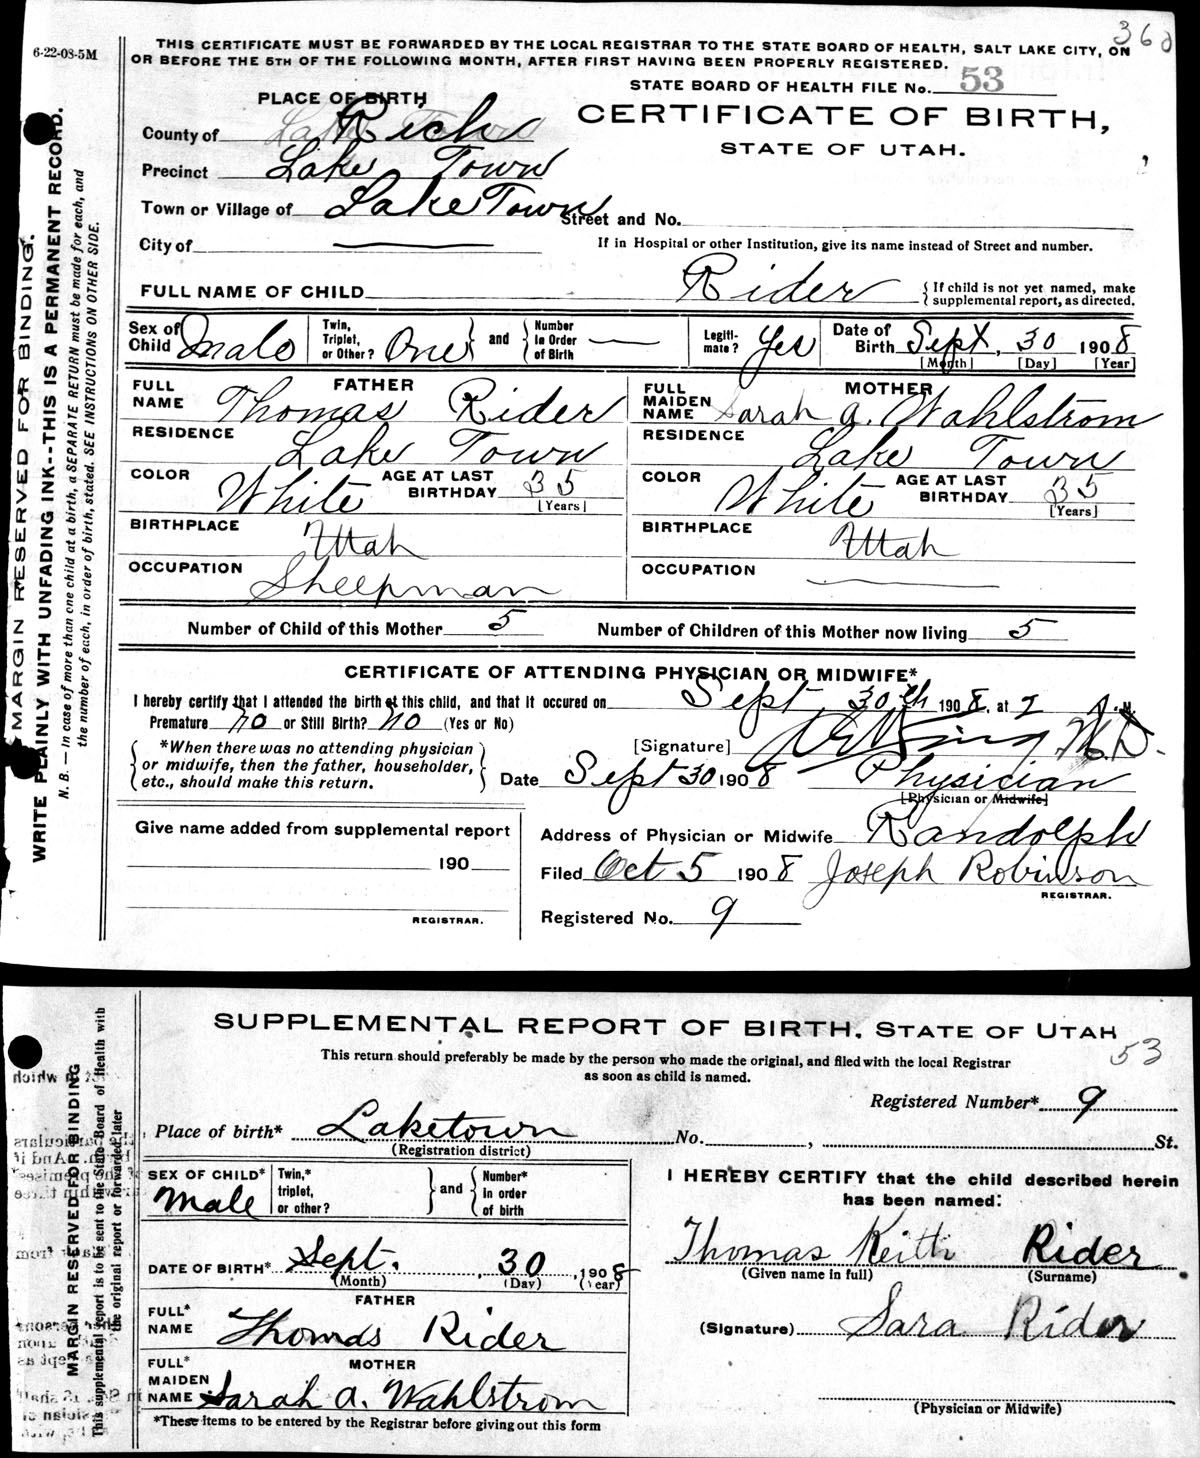 360
6-22-08-5M
THIS CERTIFICATE MUST BE FORWARDED BY THE LOCAL REGISTRAR TO THE STATE BOARD OF HEALTH, SALT LAKE CITY, ON
OR BEFORE THE 5TH OF THE FOLLOWING MONTH, AFTER FIRST HAVING BEEN PROPERLY REGISTERED.
STATE BOARD OF HEALTH FILE No. 53
PLACE OF BIRTH
CERTIFICATE OF BIRTH,
STATE OF UTAH.
County of Rich
Precinct Lake Town
Town or Village of Lake Town Street and No.
City of
If in Hospital or other Institution, give its name instead of Street and number.
FULL NAME OF CHILD Rider { If child is not yet named, make
supplemental report, as directed.
Sex of Child Male Twin, Triplet, or Other? One } and { Number In Order of Birth — Legiti-mate? Yes Date of Birth Sept, 30 1908
[Month] [Day] [Year]
FATHER
FULL NAME Thomas Rider
RESIDENCE Lake Town
COLOR White AGE AT LAST BIRTHDAY 35
[Years]
BIRTHPLACE Utah
OCCUPATION Sheepman
MOTHER
FULL MAIDEN NAME Sarah A. Wahlstrom
RESIDENCE Lake Town
COLOR White AGE AT LAST BIRTHDAY 35
[Years]
BIRTHPLACE Utah
OCCUPATION
Number of Child of this Mother 5 Number of Children of this Mother now living 5
CERTIFICATE OF ATTENDING PHYSICIAN OR MIDWIFE*
I hereby certify that I attended the birth of this child, and that it occured on Sept 30th 1908, at 2 A.M.
Premature no or Still Birth? no (Yes or No)
[Signature] M.D.
{ *When there was no attending physician
or midwife, then the father, householder,
etc., should make this return. }
Date Sept 30 1908 Physician
[Physician or Midwife]
Give name added from supplemental report
190
REGISTRAR.
Address of Physician or Midwife Randolph
Filed Oct 5 1908 Joseph Robinson
REGISTRAR.
Registered No. 9
MARGIN RESERVED FOR BINDING.
WRITE PLAINLY WITH UNFADING INK--THIS IS A PERMANENT RECORD.
N. B. — In case of more than one child at a birth, a SEPARATE RETURN must be made for each, and
the number of each, in order of birth, stated. SEE INSTRUCTIONS ON OTHER SIDE.
SUPPLEMENTAL REPORT OF BIRTH, STATE OF UTAH
53
This return should preferably be made by the person who made the original, and filed with the local Registrar
as soon as child is named.
Registered Number* 9
Place of birth* Laketown No. , St.
(Registration district)
SEX OF CHILD* Male Twin,* triplet, or other? } and { Number* in order of birth
DATE OF BIRTH* Sept. 30, 1908
(Month) (Day) (Year)
FATHER
FULL* NAME Thomas Rider
MOTHER
FULL* MAIDEN NAME Sarah A. Wahlstrom
*These items to be entered by the Registrar before giving out this form
I HEREBY CERTIFY that the child described herein
has been named:
Thomas Keith Rider
(Given name in full) (Surname)
(Signature) Sara Rider
(Physician or Midwife)
MARGIN RESERVED FOR BINDING
This supplemental report is to be sent to the State Board of Health with
the original report or forwarded later